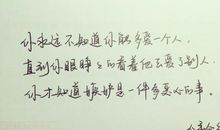 你永远不知道你能多爱一个人。
直到你眼睁睁的看着他去爱了别人。
你才知道嫉妒是一件多恶心的事。